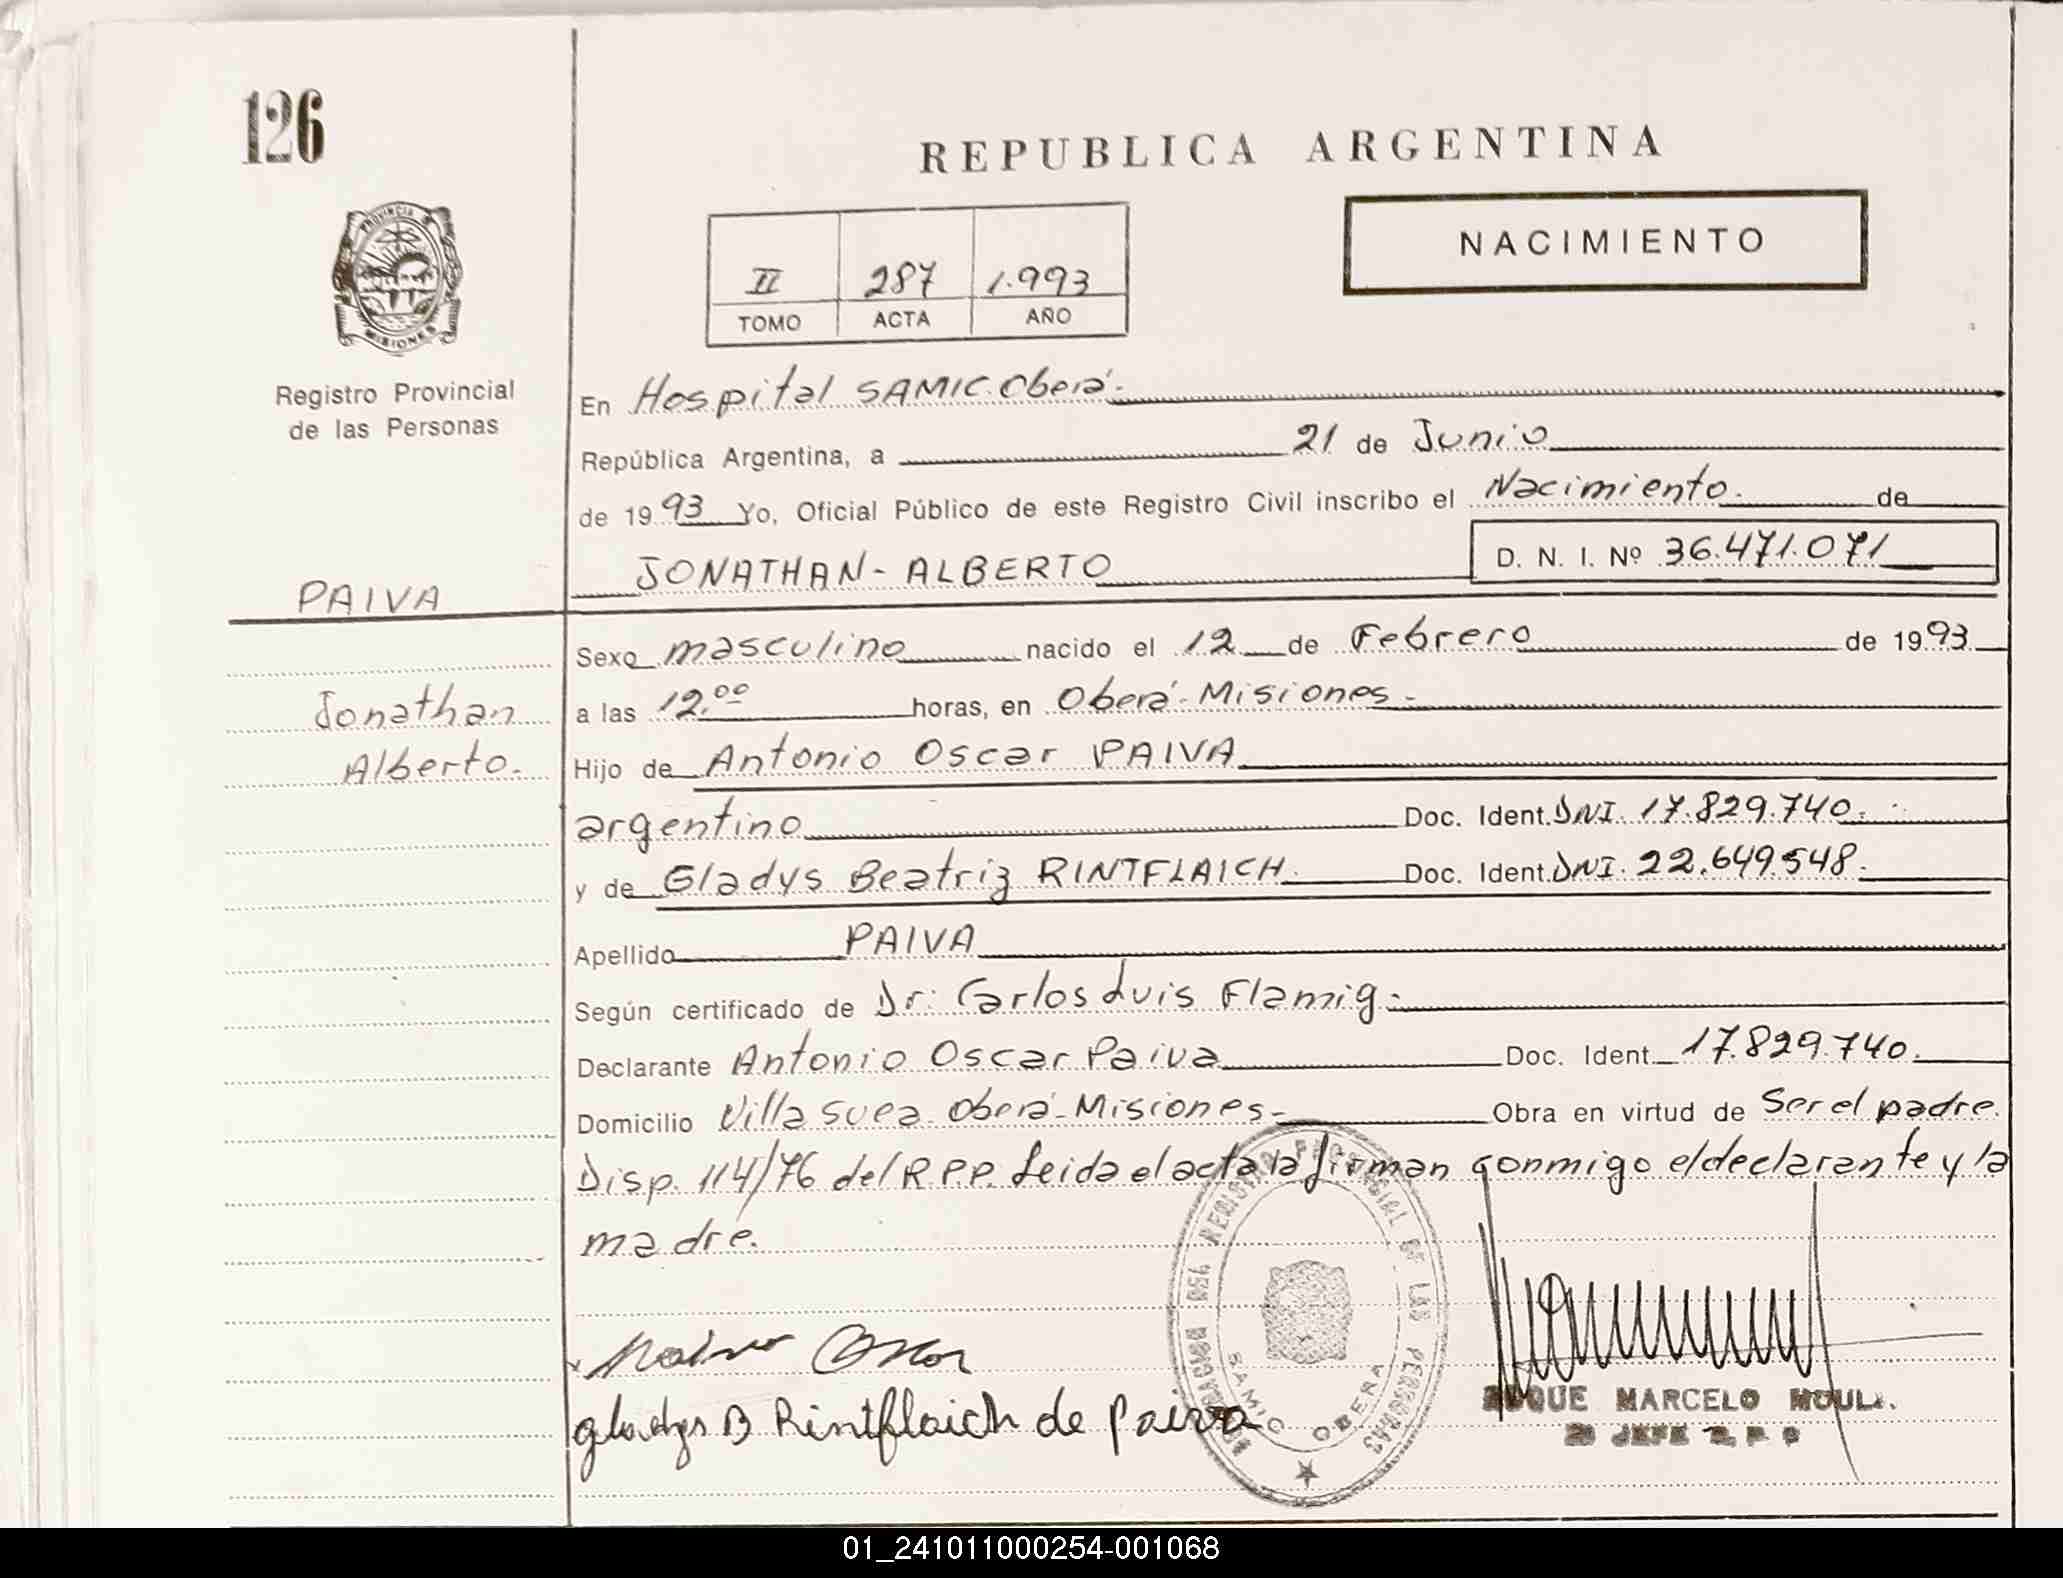 126
REPUBLICA ARGENTINA
NACIMIENTO
II 287 1.993
TOMO ACTA AÑO
PROVINCIA DE MISIONES
Registro Provincial
de las Personas
En Hospital SAMIC. Oberá.-
República Argentina, a 21 de Junio
de 1993 Yo, Oficial Público de este Registro Civil inscribo el Nacimiento. de
JONATHAN - ALBERTO D. N. I. Nº 36.471.071
PAIVA
Sexo masculino nacido el 12 de Febrero de 1993
Jonathan
a las 12.00 horas, en Oberá - Misiones -
Alberto.
Hijo de Antonio Oscar PAIVA
argentino Doc. Ident. DNI. 17.829.740.
y de Gladys Beatriz RINTFLAICH. Doc. Ident. DNI. 22.649.548.
Apellido PAIVA
Según certificado de Dr: Carlos Luis Flamig.-
Declarante Antonio Oscar Paiva Doc. Ident. 17.829.740.
Domicilio Villa Suea. Oberá - Misiones - Obra en virtud de Ser el padre.
Disp. 114/76 del R.P.P. Leida el acta la firman conmigo el declarante y la
madre.
DEL REGISTRO PROVINCIAL DE LAS PERSONAS
SAMIC OBERA
gladys B Rintflaich de Paiva
MARCELO
JEFE
01_241011000254-001068